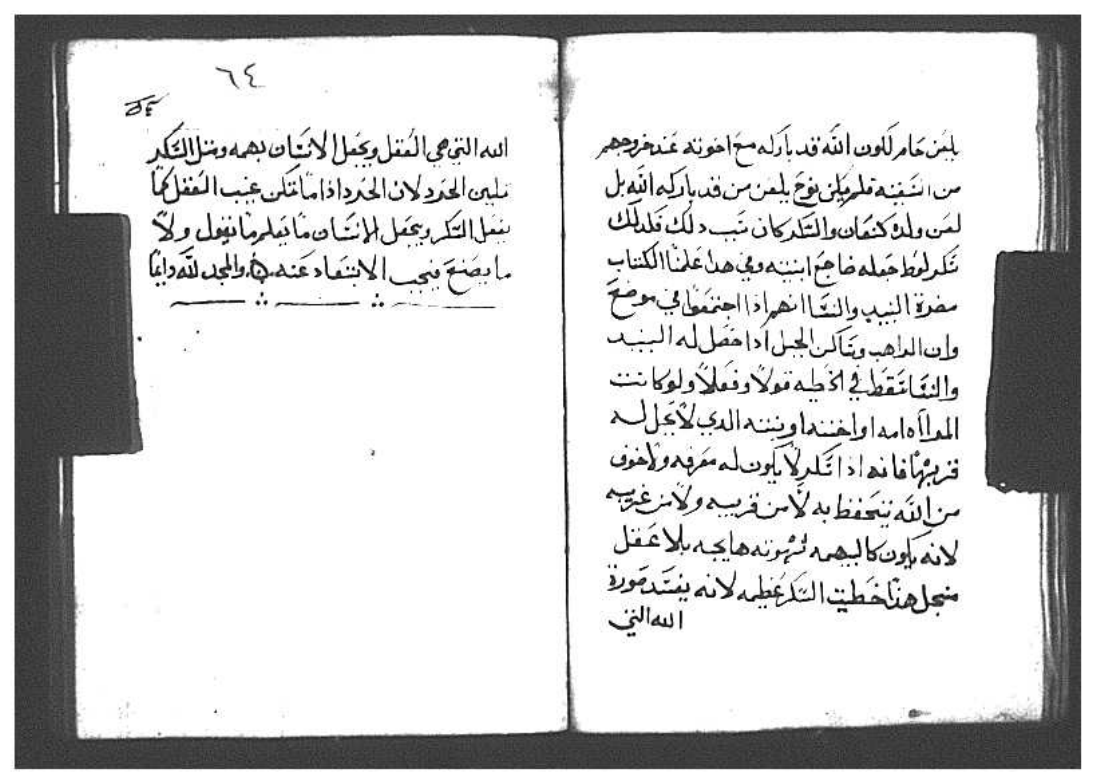 يلعن حام لكون الله قد باركه مع اخوته عند خروجهم
من السفينه فلم يكن نوح يلعن من قد باركه الله بل
لعن ولده كنعان والسكر كان سبب دلك فلدلك
سكر لوط جعله ضاجع ابنته وفي هدا علمنا الكتاب
مضرة النبيد والنسا انهم ادا اجتمعوا في موضع
وان الراهب وساكن الجبل ادا حصل له النبيد
والنسا سقط في الخطيه قولا وفعلا ولو كانت
المراه امه او اخته او بنته الدي لا يحل له
قربها فانه ادا سكر لا يكون له معرفه ولا خوف
من الله يتحفظ به لا من قريبه ولا من غريبه
لانه يكون كالبهيمه شهوته هايجه بلا عقل
منجل هدا خطيت السكر عظيمه لانه يفسد صورة
الله التي
٦٤
الله التي هي العقل ويجعل الانسان بهمه ومتل السكر
يكن الحرد لان الحرد ادا ما تمكن غيب العقل كما
يفعل السكر ويجعل الانسان ما يعلم ما يقول ولا
ما يصنع فيجب الابتعاد عنه والمجد لله دايما